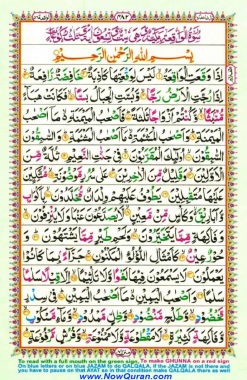 بِسْمِ اللهِ الرَّحْمٰنِ الرَّحِيْمِ
اِذَا وَقَعَتِ الْوَاقِعَةُ لَيْسَ لِوَقْعَتِهَا كَاذِبَةٌ خَافِضَةٌ رَّافِعَةٌ
اِذَا رُجَّتِ الْاَرْضُ رَجًّا وَّبُسَّتِ الْجِبَالُ بَسًّا فَكَانَتْ هَبَآءً
مُّنْۢبَثًّا وَّكُنْتُمْ اَزْوَاجًا ثَلٰثَةً فَاَصْحٰبُ الْمَيْمَنَةِ مَاۤ اَصْحٰبُ
الْمَيْمَنَةِ وَاَصْحٰبُ الْمَشْـَٔمَةِ مَاۤ اَصْحٰبُ الْمَشْـَٔمَةِ وَالسّٰبِقُوْنَ
السّٰبِقُوْنَ اُولٰٓئِكَ الْمُقَرَّبُوْنَ فِيْ جَنّٰتِ النَّعِيْمِ ثُلَّةٌ مِّنَ
الْاَوَّلِيْنَ وَقَلِيْلٌ مِّنَ الْاٰخِرِيْنَ عَلٰى سُرُرٍ مَّوْضُوْنَةٍ مُّتَّكِـِٕيْنَ
عَلَيْهَا مُتَقٰبِلِيْنَ يَطُوْفُ عَلَيْهِمْ وِلْدَانٌ مُّخَلَّدُوْنَ بِاَكْوَابٍ
وَّاَبَارِيْقَ وَكَاْسٍ مِّنْ مَّعِيْنٍ لَّا يُصَدَّعُوْنَ عَنْهَا وَلَا يُنْزِفُوْنَ
وَفَاكِهَةٍ مِّمَّا يَتَخَيَّرُوْنَ وَلَحْمِ طَيْرٍ مِّمَّا يَشْتَهُوْنَ وَ
حُوْرٌ عِيْنٌ كَاَمْثَالِ اللُّؤْلُؤِ الْمَكْنُوْنِ جَزَآءًۢ بِمَا كَانُوْا
يَعْمَلُوْنَ لَا يَسْمَعُوْنَ فِيْهَا لَغْوًا وَّلَا تَاْثِيْمًا اِلَّا قِيْلًا سَلٰمًا
سَلٰمًا وَاَصْحٰبُ الْيَمِيْنِ مَاۤ اَصْحٰبُ الْيَمِيْنِ فِيْ سِدْرٍ
مَّخْضُوْدٍ وَّطَلْحٍ مَّنْضُوْدٍ وَّظِلٍّ مَّمْدُوْدٍ وَّمَآءٍ مَّسْكُوْبٍ
وَّفَاكِهَةٍ كَثِيْرَةٍ لَّا مَقْطُوْعَةٍ وَّلَا مَمْنُوْعَةٍ وَّفُرُشٍ مَّرْفُوْعَةٍ
To read with a full mouth on the green sign, To make GHUNNA on a red sign
On blue letters or on blue JAZAM to do QALQALA, if the JAZAM is not there and
you have to pause on that AYAT so in that condition make QALQALA there as well
www.NowQuran.com